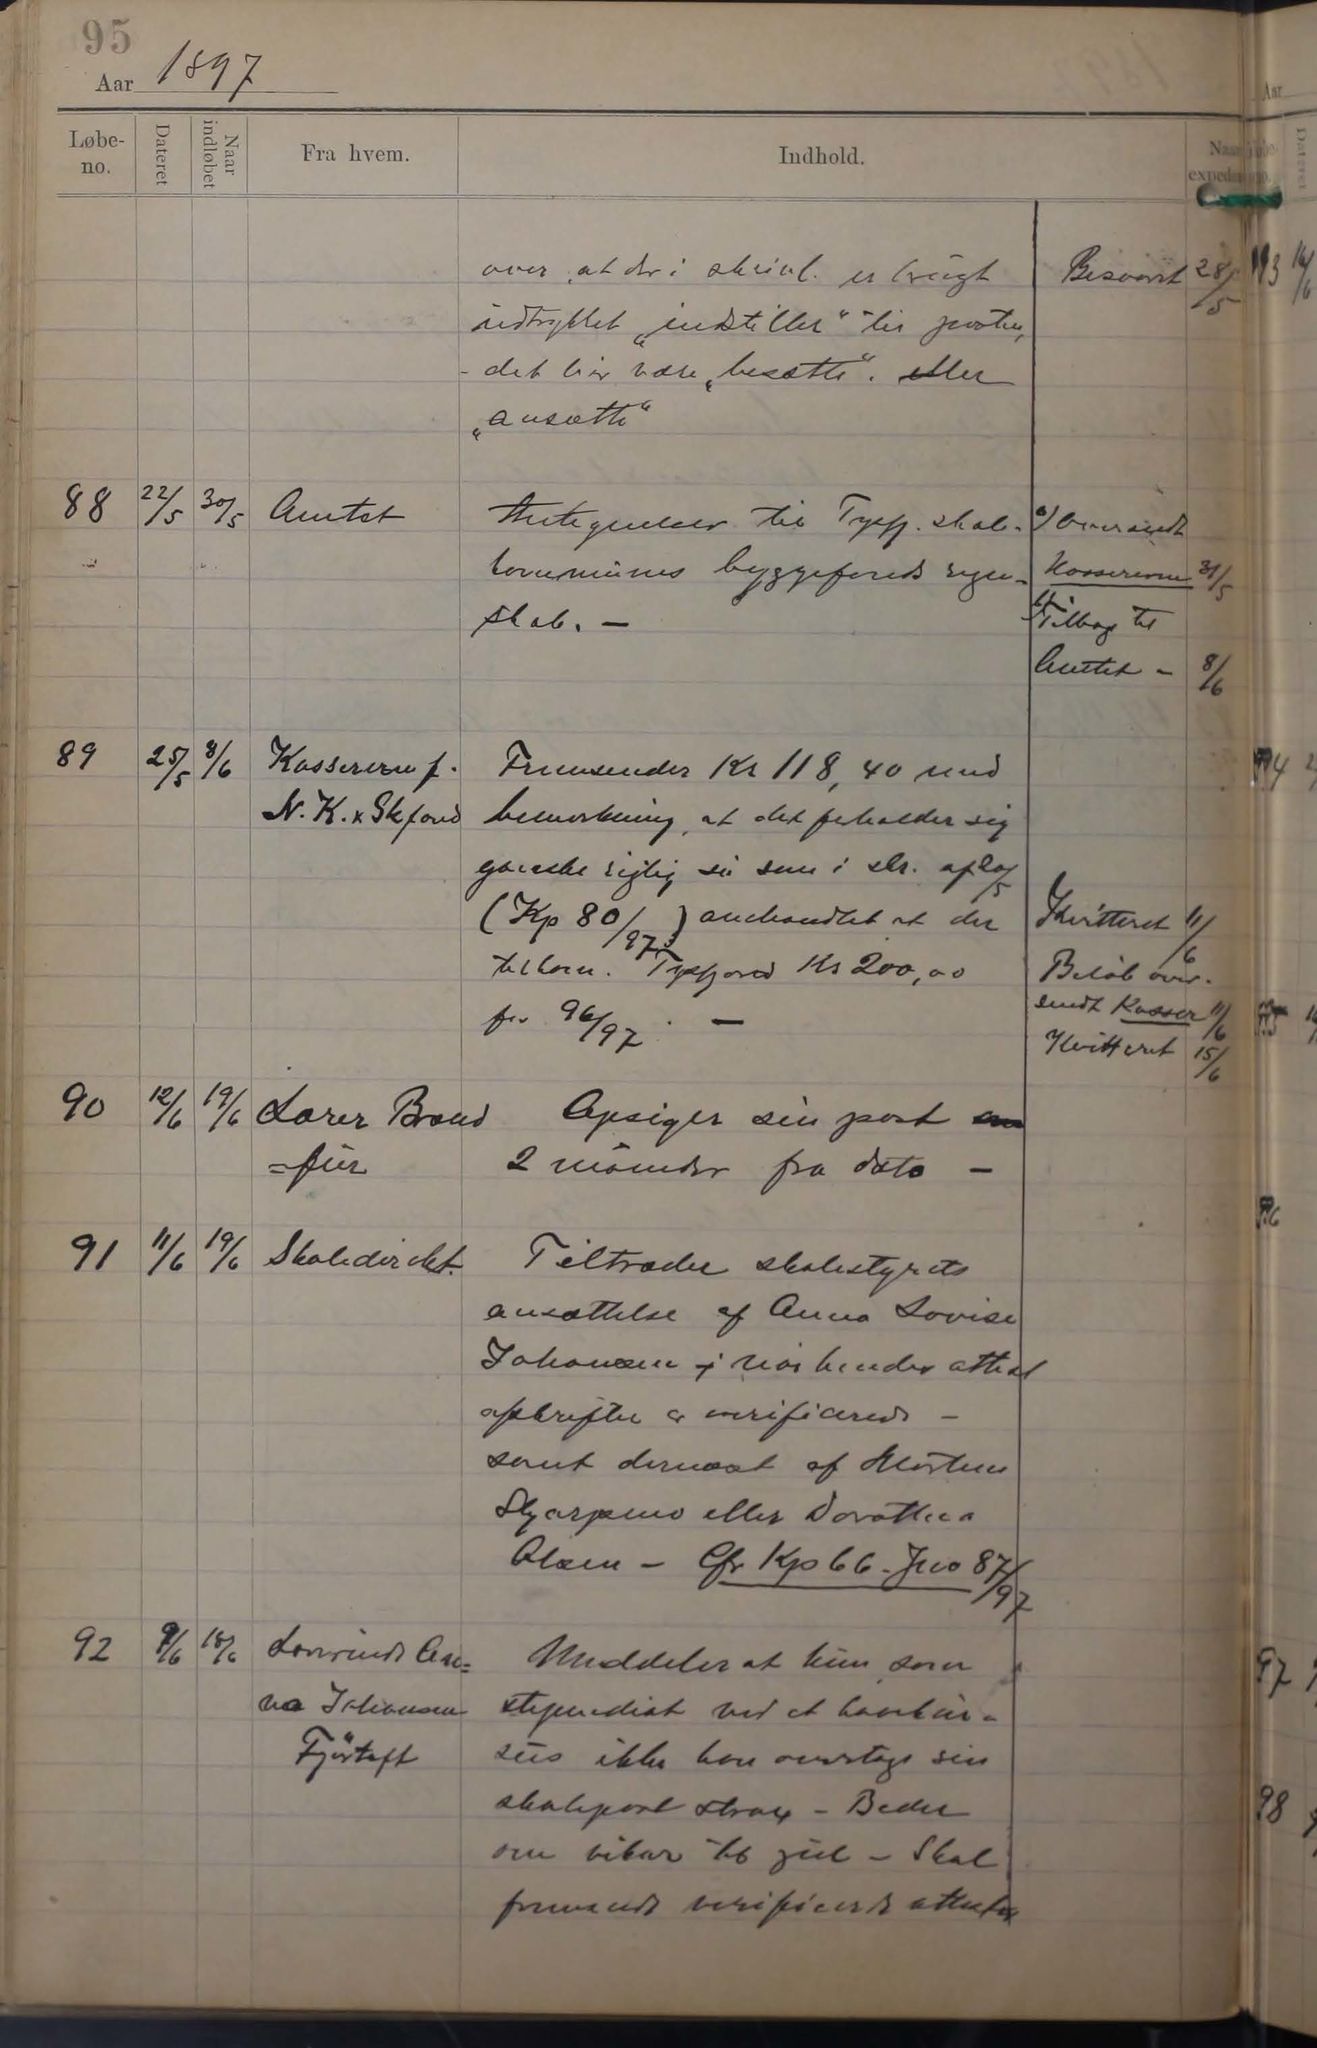 95
Aar 1897
Løbe-no. Dateret Naar indløbet Fra hvem. Indhold. Naar exped
over, at der i skriv. er brugt Besvaret 28/5
udtrykket „indstiller“ til posten,
- det bør være „besætte“. eller
„ansætte“
88 22/5 30/5 Amtet Antegnelser til Tyssf. skole- a/ Oversendt
kommunes byggefonds regn- Kassereren 31/5
skab. — b/ Tilbage til
Amtet - 8/6
89 25/5 8/6 Kassereren f. Fremsender Kr 118,40 med
N. K. & Skfond bemærkning, at det forholder sig
ganske rigtig så som i skr. af 20/5
(Kp 80/97) anehandlet at der Kvitteret 11/6
tilkom. Kr 200,00 Beløb over-
for 96/97. — sendt Kasser 11/6
Kvitteret 15/6
90 12/6 19/6 Lærer Brand Opsiger sin post
=fur 2 måneder fra dato —
91 11/6 19/6 Skoledirekt. Tiltræder skolestyrets
ansættelse af Anna Lovise
Johansen når hendes attest
afskrifter er verificerede —
samt dernæst af Morten
eller Dorothea
Olsen — Cfr Kp 66. Jno 87/97
92 9/6 18/6 Lærerinde An= Meddeler at hun som
na Johansen stipendiat ved et havekur-
Fjørtoft sus ikke kan overtage sin
skolepost strax — Beder
om vikar til jul — Skal
fremsende verificerede attester